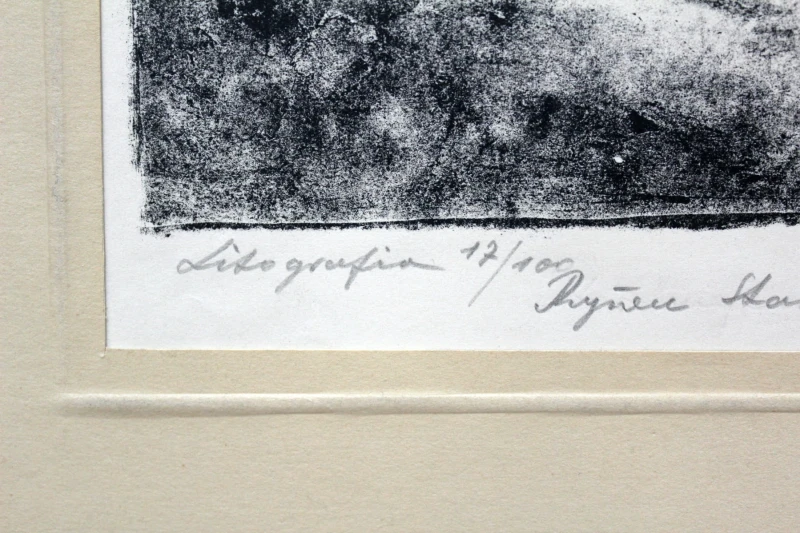 Litografia 17/100
Rynek Sta